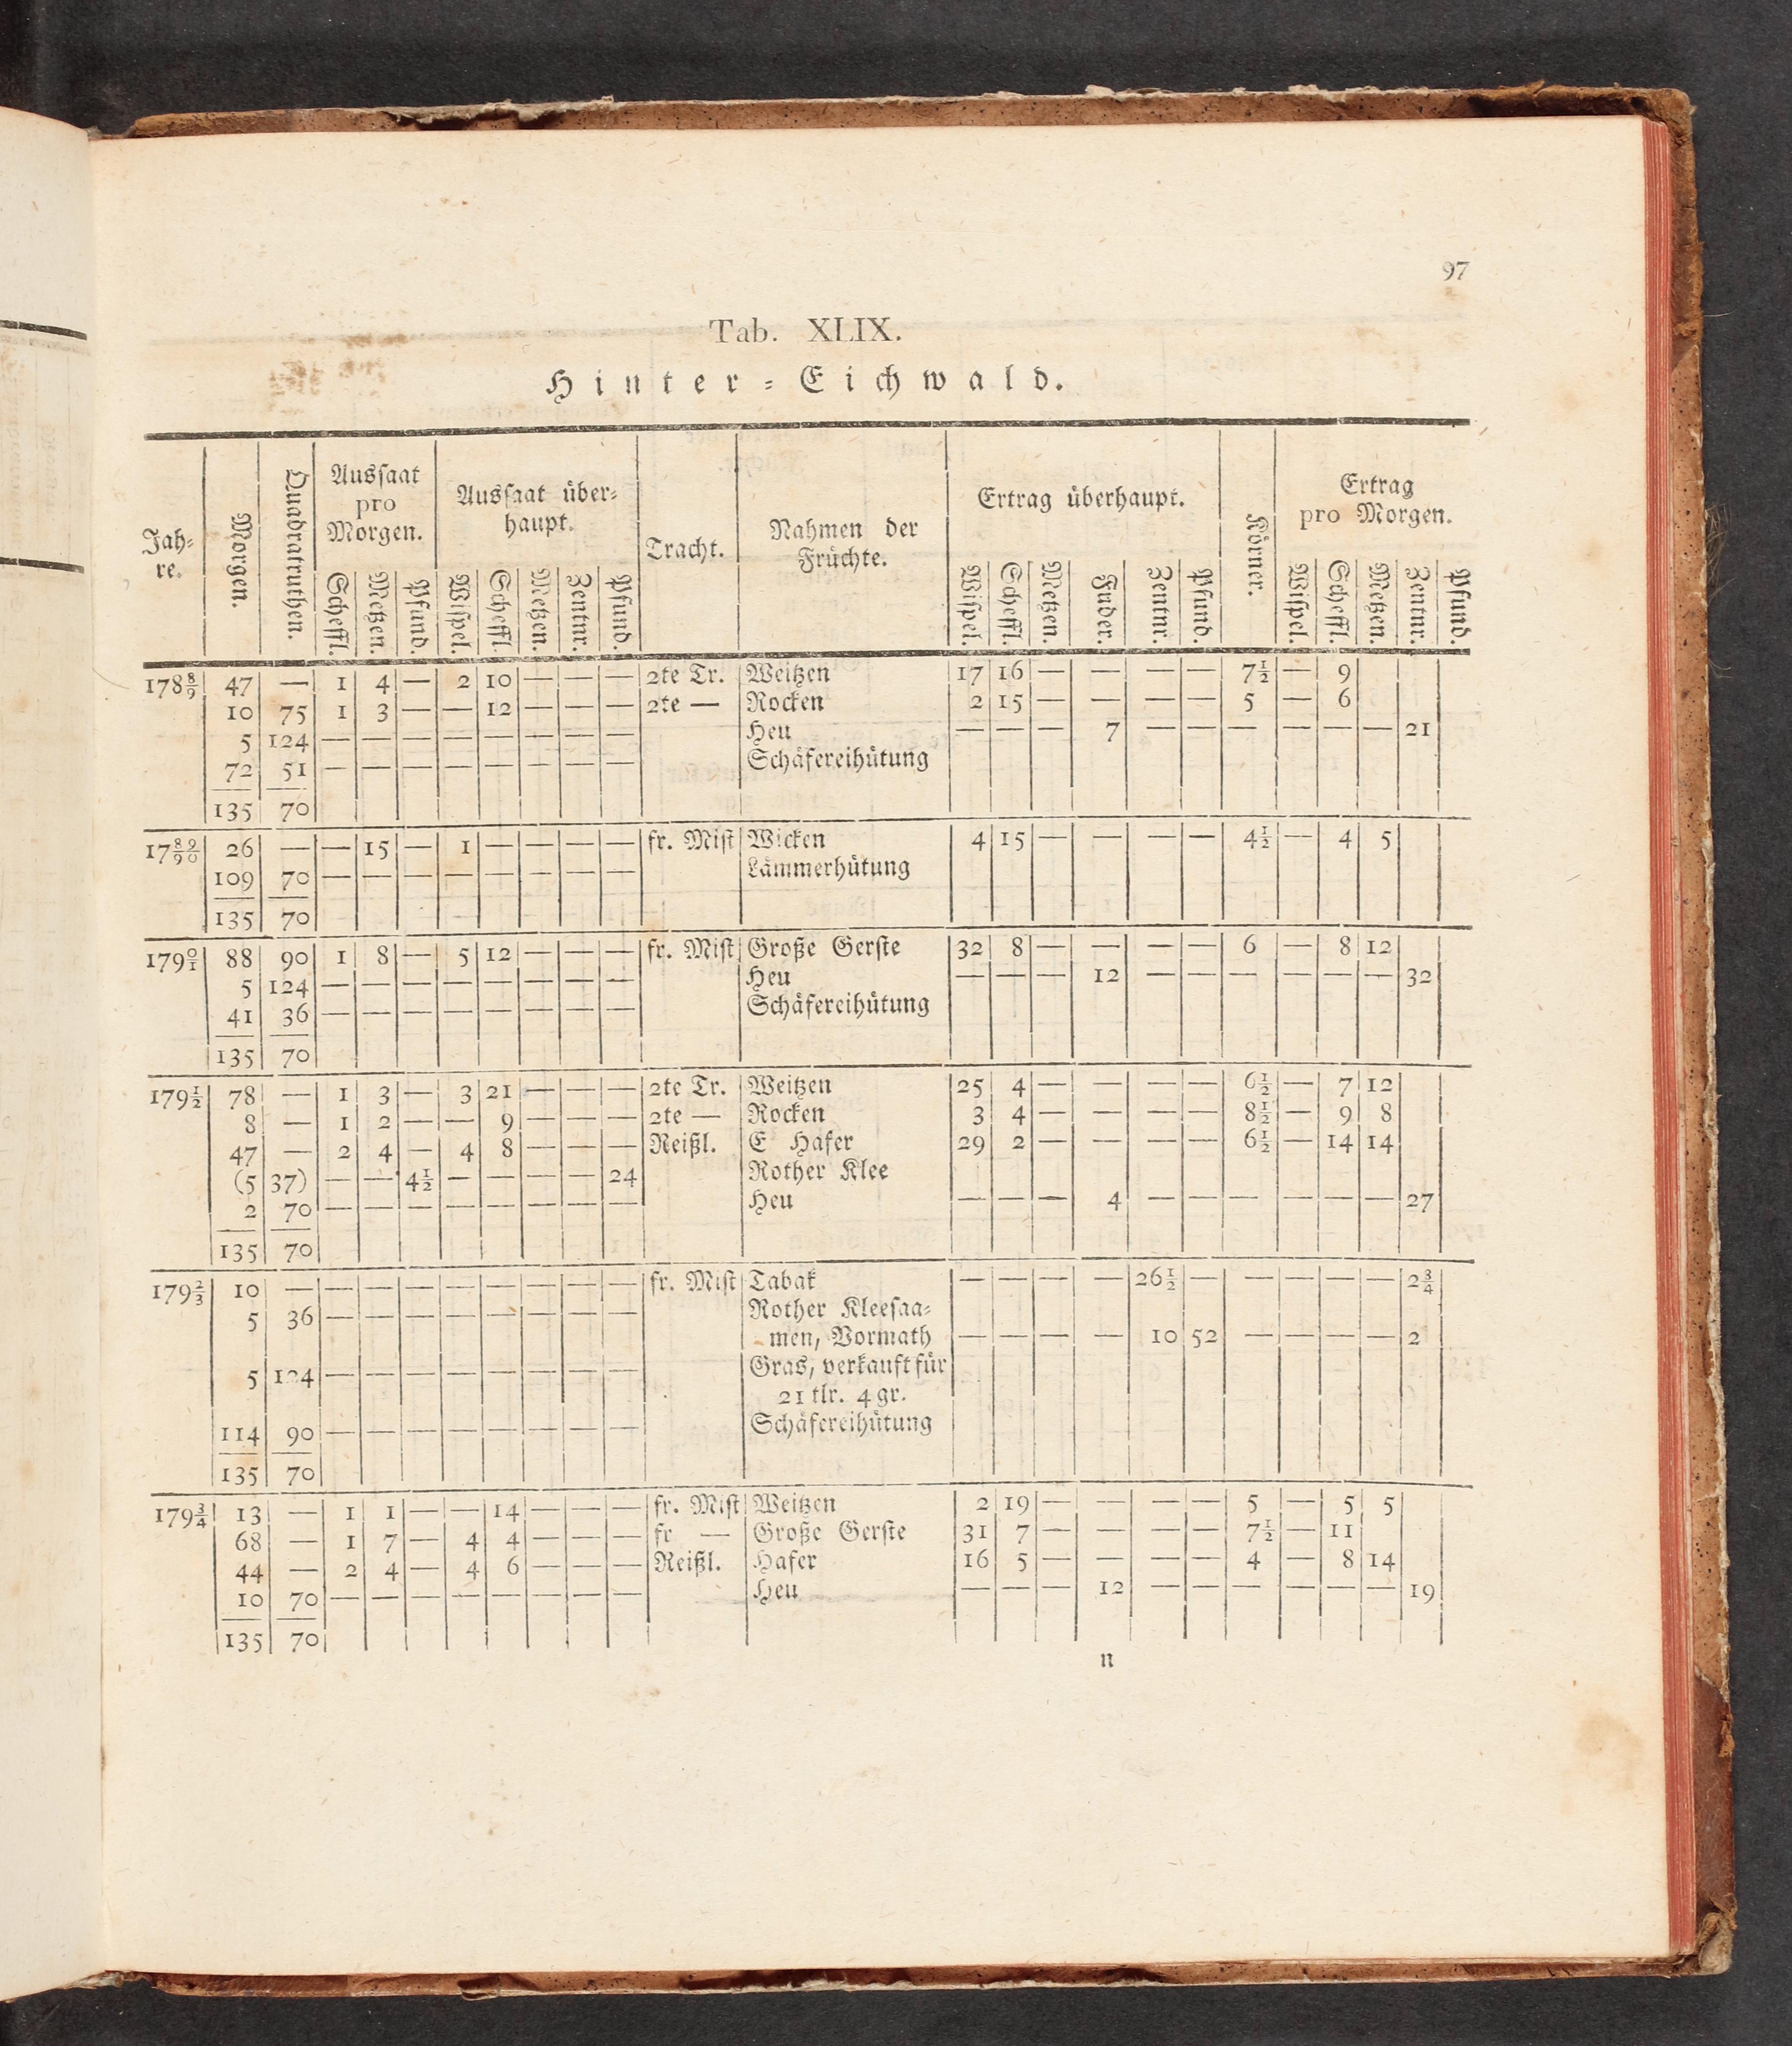 97
Tab. XLIX.
Hinter-Eichwald.
Jah-
re.
Morgen.
Quadratruthen.
Aussaat
pro
Morgen.
Scheffl. Metzen. Pfund.
Aussaat über-
haupt.
Wispel. Scheffl. Metzen. Zentnr. Pfund.
Tracht.
Nahmen der
Früchte.
Ertrag überhaupt.
Wispel. Scheffl. Metzen. Fuder. Zentnr. Pfund.
Körner.
Ertrag
pro Morgen.
Wispel. Scheffl. Metzen. Zentnr. Pfund.
178 8/9 47 — 1 4 — 2 10 — — — 2te Tr. Weitzen 17 16 — — — — 7 1/2 — 9
10 75 1 3 — — 12 — — — 2te — Rocken 2 15 — — — — 5 — 6
5 124 — — — — — — — — Heu — — — 7 — — — — — — 21
72 51 — — — — — — — — Schäfereihütung
135 70
17 89/90 26 — — 15 — 1 — — — — fr. Mist Wicken 4 15 — — — — 4 1/2 — 4 5
109 70 — — — — — — — — Lämmerhütung
135 70
179 0/1 88 90 1 8 — 5 12 — — — fr. Mist Große Gerste 32 8 — — — — 6 — 8 12
5 124 — — — — — — — — Heu — — — 12 — — — — — — 32
41 36 — — — — — — — — Schäfereihütung
135 70
179 1/2 78 — 1 3 — 3 21 — — — 2te Tr. Weitzen 25 4 — — — — 6 1/2 — 7 12
8 — 1 2 — — 9 — — — 2te — Rocken 3 4 — — — — 8 1/2 — 9 8
47 — 2 4 — 4 8 — — — Reißl. E Hafer 29 2 — — — — 6 1/2 — 14 14
(5 37) — — 4 1/2 — — — — 24 Rother Klee
2 70 — — — — — — — — Heu — — — 4 — — — — — — 27
135 70
179 2/3 10 — — — — — — — — — fr. Mist Tabak — — — — 26 1/2 — — — — — 2 3/4
5 36 — — — — — — — — Rother Kleesaa-
men, Vormath — — — — 10 52 — — — — 2
5 124 — — — — — — — — Gras, verkauft für
21 tlr. 4 gr.
114 90 — — — — — — — — Schäfereihütung
135 70
179 3/4 13 — 1 1 — — 14 — — — fr. Mist Weitzen 2 19 — — — — 5 — 5 5
68 — 1 7 — 4 4 — — — fr — Große Gerste 31 7 — — — — 7 1/2 — 11
44 — 2 4 — 4 6 — — — Reißl. Hafer 16 5 — — — — 4 — 8 14
10 70 — — — — — — — — Heu — — — 12 — — — — — — 19
135 70
n